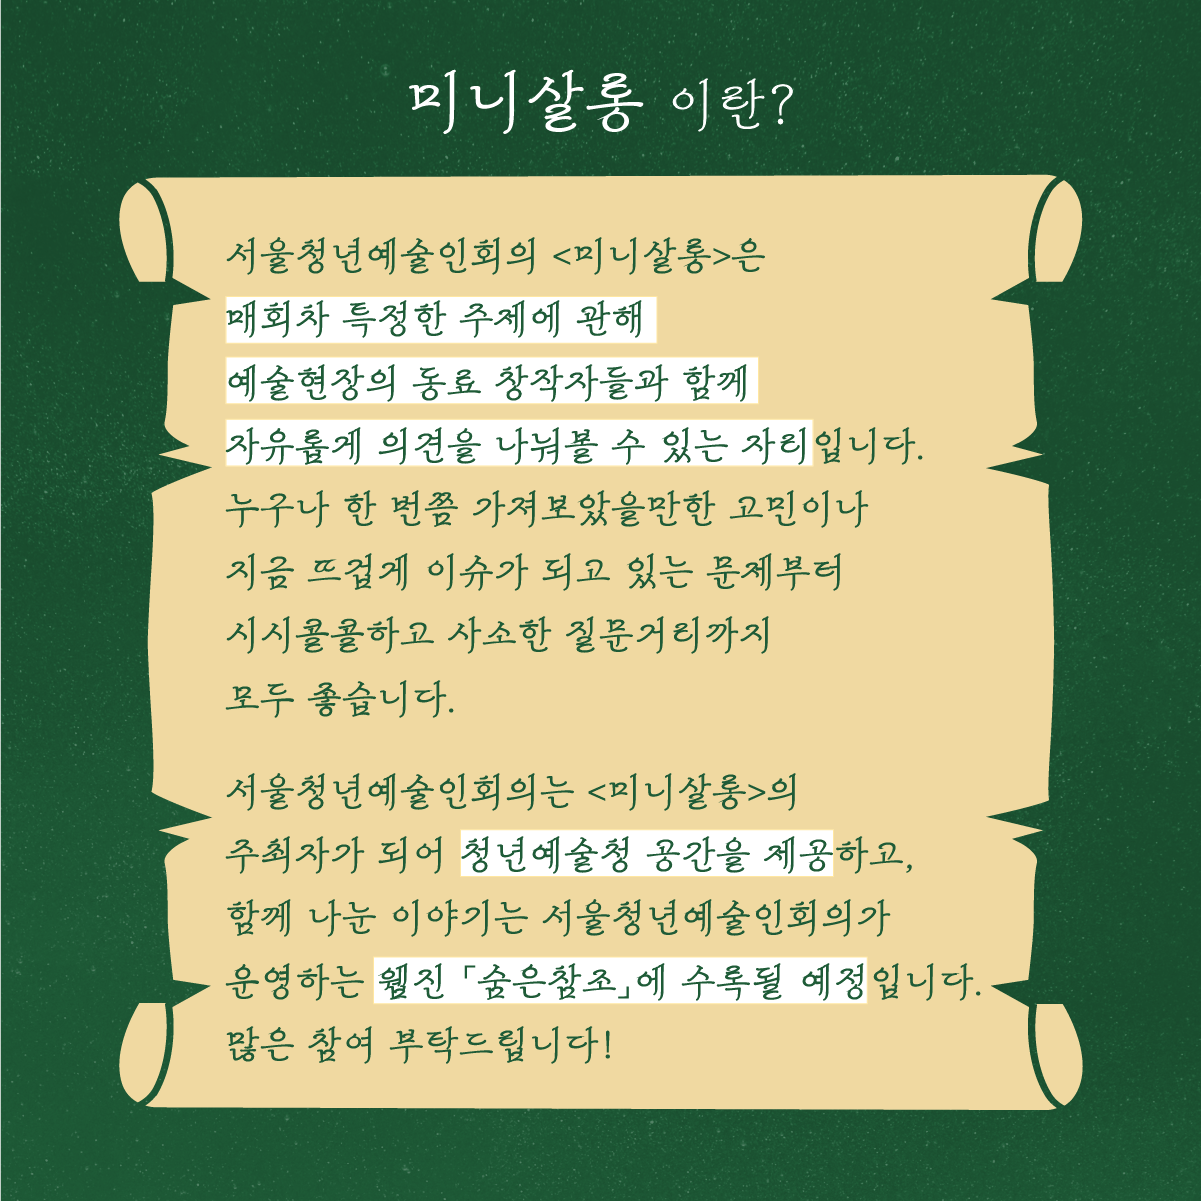 미니살롱 이란?
서울청년예술인회의 <미니살롱>은
매회차 특정한 주제에 관해
예술현장의 동료 창작자들과 함께
자유롭게 의견을 나눠볼 수 있는 자리입니다.
누구나 한 번쯤 가져보았을만한 고민이나
지금 뜨겁게 이슈가 되고 있는 문제부터
시시콜콜하고 사소한 질문거리까지
모두 좋습니다.
서울청년예술인회의는 <미니살롱>의
주최자가 되어 청년예술청 공간을 제공하고,
함께 나눈 이야기는 서울청년예술인회의가
운영하는 웹진 「숨은참조」에 수록될 예정입니다.
많은 참여 부탁드립니다!